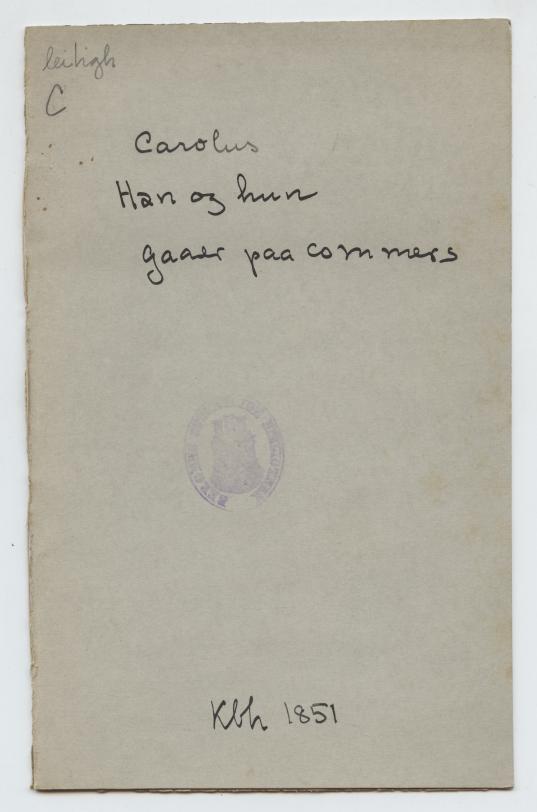 C
Carolus
Han og hun
gaaer paa commers
Kbh 1851